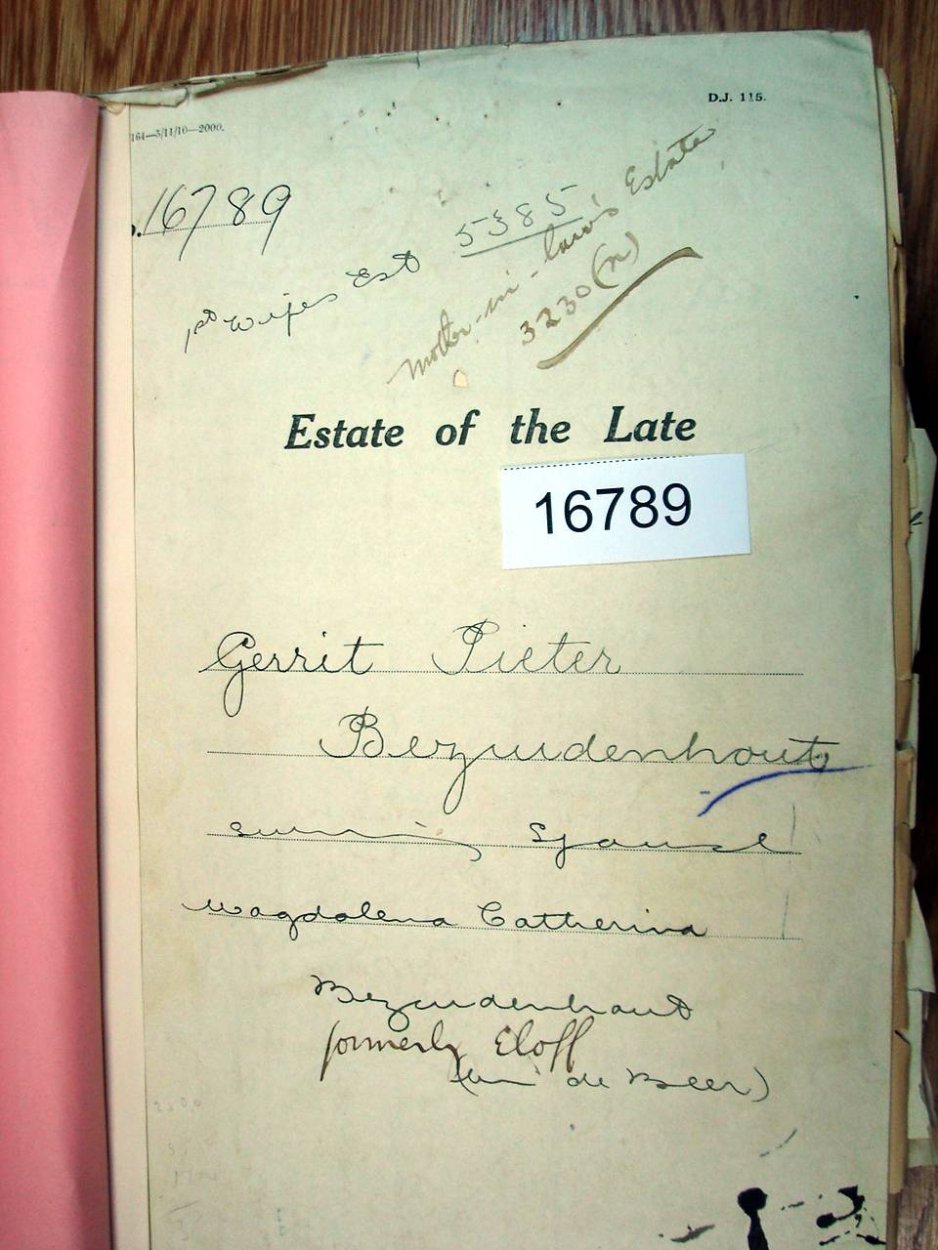 D.J. 115.
164—5/11/10—2000.
16789
1st Wifes Est 5385
Mother-in-law's Estate
3230 (n)
Estate of the Late
16789
Gerrit Pieter
Bezuidenhout
surviving Spouse
Magdalena Catherina
Bezuidenhout
formerly Eloff
de Beer)